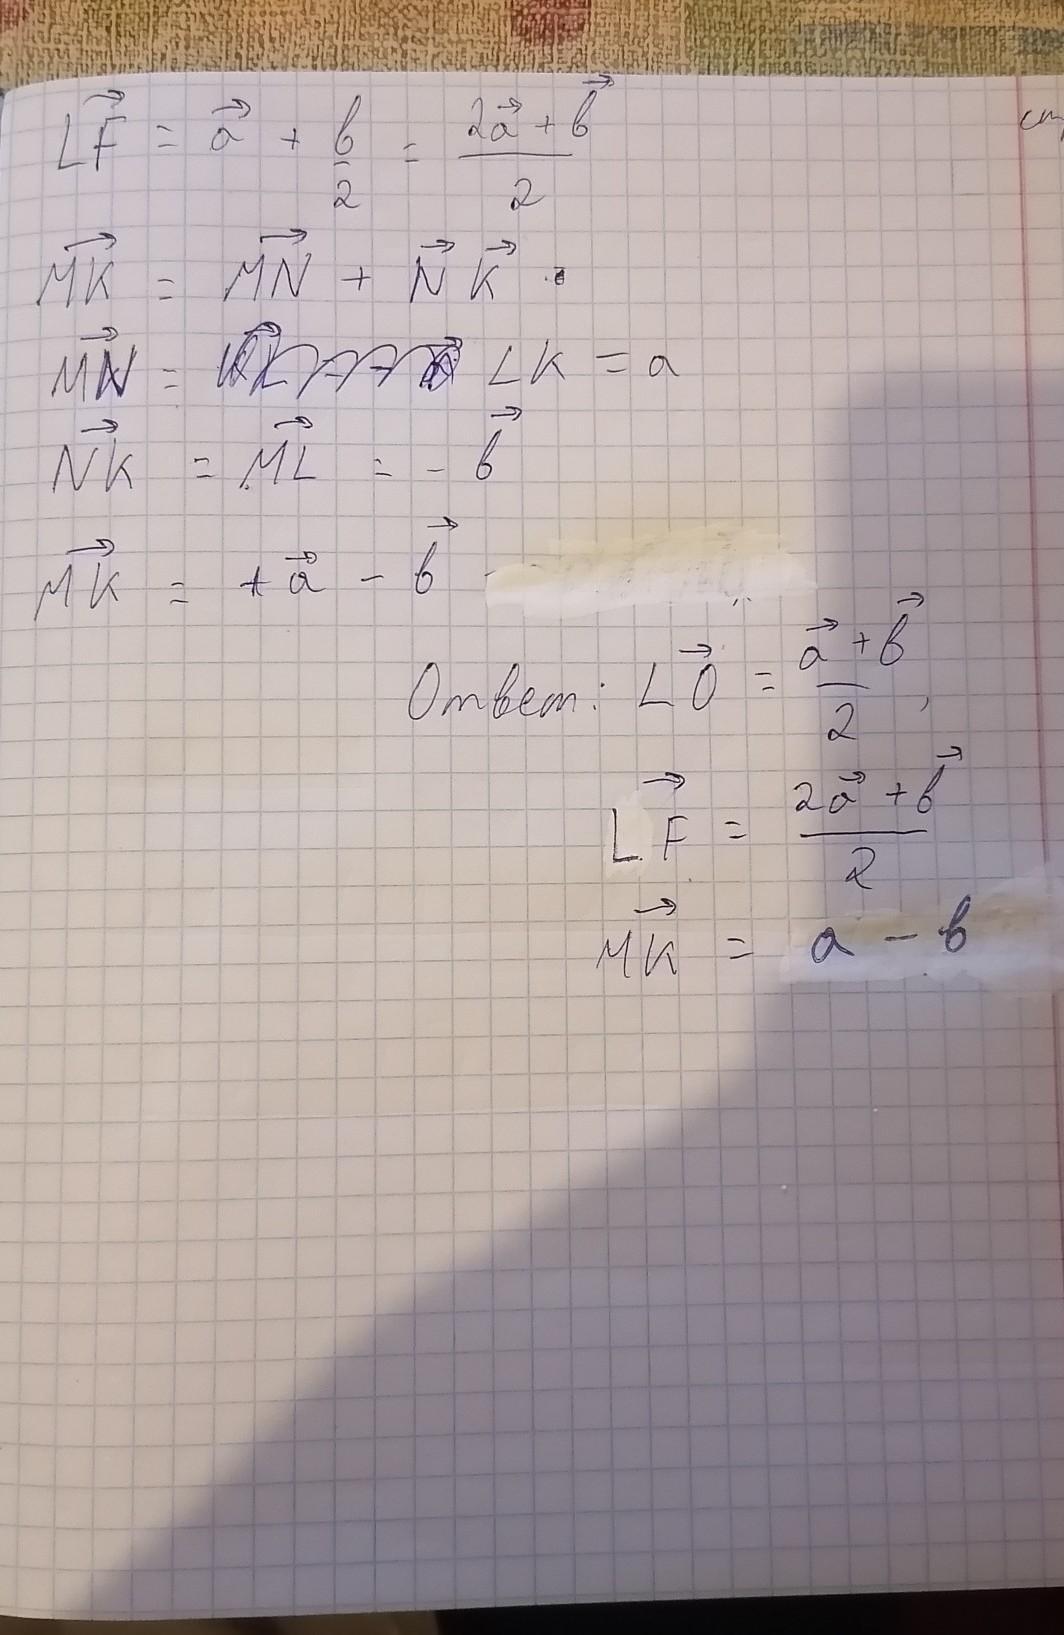 LF→ = a→ + b/2 = (2a→ + b→)/2
MK→ = MN→ + N→K→ .
MN→ = LK = a
NK→ = ML→ = - b→
MK→ = + a→ - b→ -
Ответ: LO→ = (a→ + b→)/2 ,
LF→ = (2a→ + b→)/2
MK→ = a - b